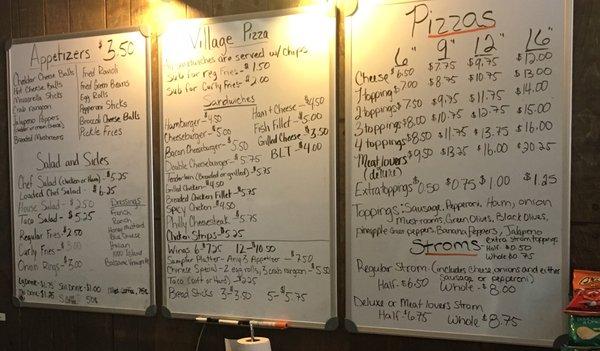 Appetizers $3.50
Cheddar Cheese Balls
Hot Cheese Balls
Mozzarella Sticks
Crab rangoon
Jalapeno Poppers
Breaded Mushrooms
Fried Ravioli
Fried Green Beans
Egg Rolls
Pepperoni Sticks
Broccoli Cheese Balls
Pickle Fries
Salad and Sides
Chef Salad (chicken or Ham) - $5.25
Loaded Chef Salad - $6.25
House Salad - $2.50
Taco Salad - $5.25
Regular Fries - $2.50
Curly Fries - $3.00
Onion Rings - $3.00
Dressings
French
Ranch
Honey Mustard
Blue Cheese
Italian
1000 Island
Village Pizza
Sandwiches are served w/ chips.
Sub for reg Fries - $1.50
Sub for Curly Fries - $2.00
Sandwiches
Hamburger - $4.50
Cheeseburger - $5.00
Bacon Cheeseburger - $5.50
Double Cheeseburger - $5.75
Tenderloin (Breaded or grilled) - $5.75
Grilled Chicken - $4.50
Breaded Chicken Fillet - $5.75
Spicy Chicken - $4.50
Philly Cheesesteak - $5.75
Chicken Strips - $5.25
Ham + Cheese - $4.50
Fish Fillet - $5.00
Grilled Cheese - $3.50
BLT - $4.00
Wings 6 - 7.25 12 - 10.50
Sampler Platter - Any 3 Appetizer - $7.50
Chinese Special - 2 egg rolls, 3 crab rangoon - $5.50
Taco (soft or Hard) - $2.25
Bread Sticks 3 - $3.50 5 - $5.75
Pizzas
6" 9" 12" 16"
Cheese $6.50 $7.75 $9.75 $12.00
1 topping $7.00 $8.75 $10.75 $13.00
2 toppings $7.50 $9.75 $11.75 $14.00
3 toppings $8.00 $10.75 $12.75 $15.00
4 toppings $8.50 $11.75 $13.75 $16.00
Meat lovers $9.50 $13.25 $16.00 $20.25
(deluxe)
Extra toppings $0.50 $0.75 $1.00 $1.25
Toppings: Sausage, Pepperoni, Ham, onion
Mushrooms, Green Olives, Black Olives,
pineapple Green peppers, Banana Peppers, Jalapeno
Stroms
extra strom toppings
Half $0.50
Whole $0.75
Regular Strom (includes cheese, onions and either
sausage or pepperoni)
Half - $6.50 Whole - $8.00
Deluxe or Meat lovers Strom
Half - $6.75 Whole - $8.75